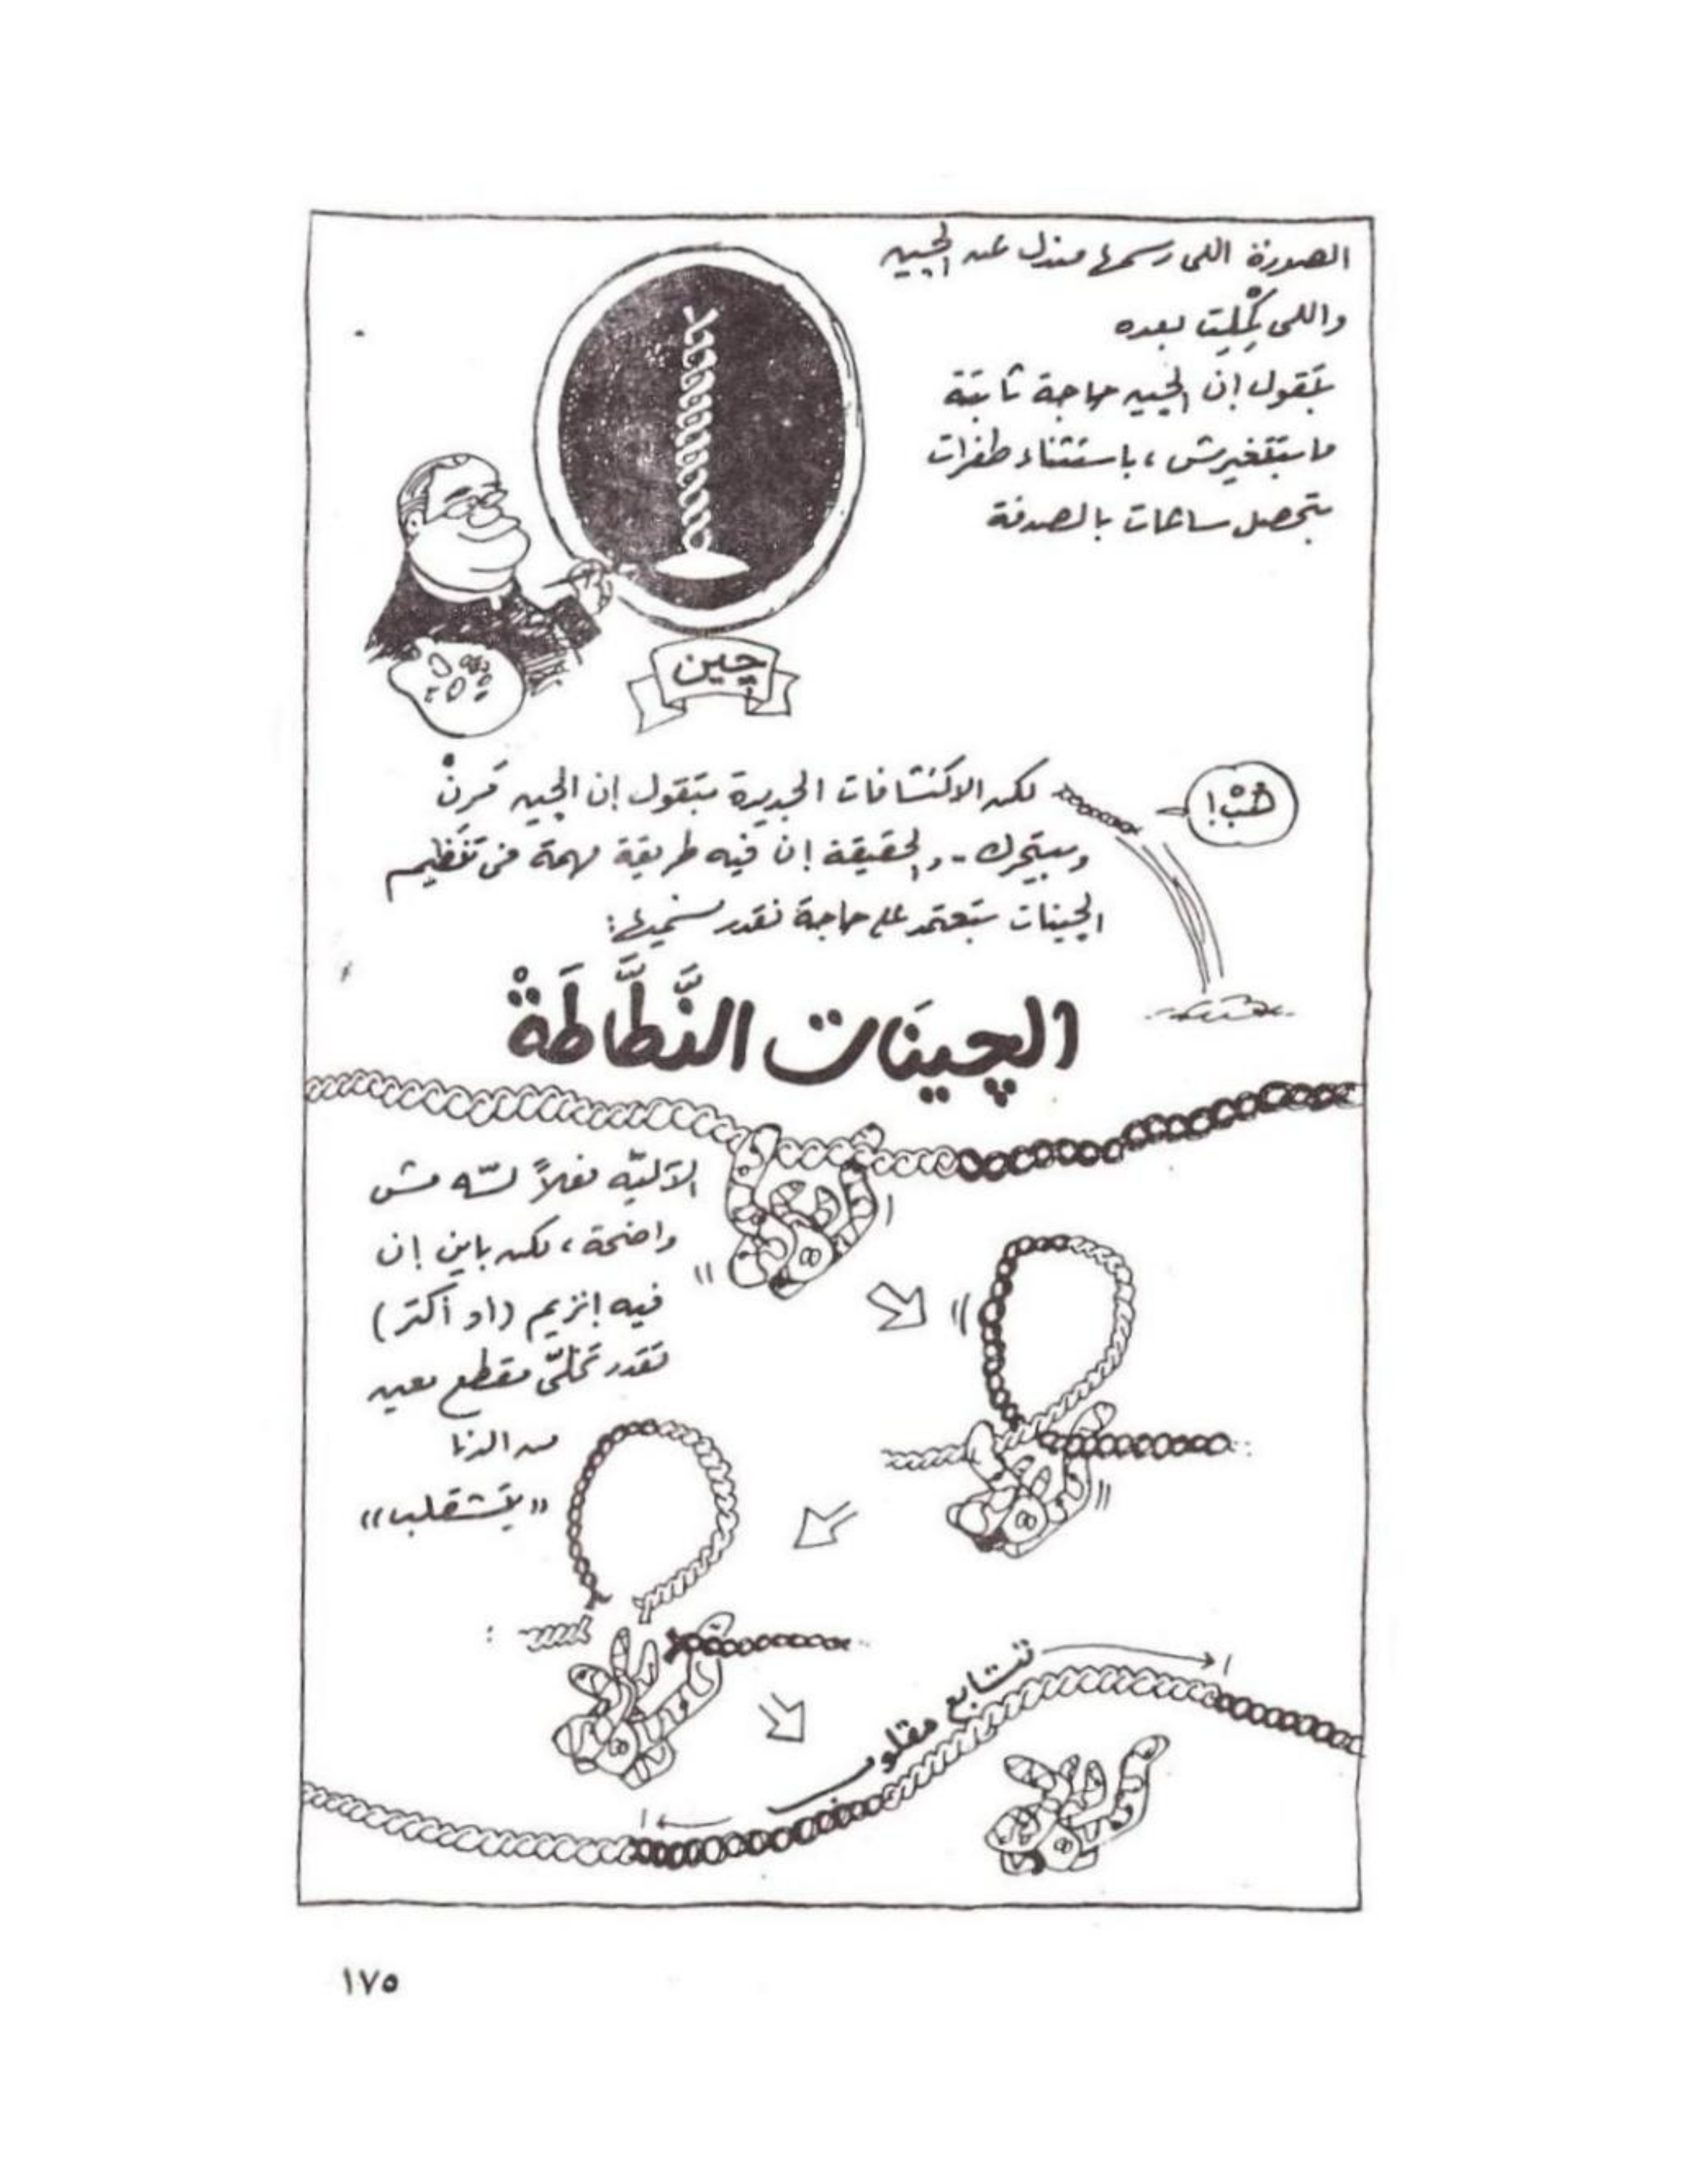 الصورة اللى رسمها مندل عن الچين
واللى كْمِلِت بعده
بتقول إن الچين حاجة ثابتة
ما بتتغيرش، باستثناء طفرات
بتحصل ساعات بالصدفة
چين
هُبْ!
لكن الاكتشافات الجديدة بتقول إن الچين مَرِنْ
وبيتحرك.. والحقيقة إن فيه طريقة مهمة فى تنظيم
الچينات بتعتمد على حاجة نقدر نسميها:
الچينَات النَّطَّاطَةْ
الآليّه فعلاً لسّه مش
واضحة، لكن باين إن
فيه إنزيم (أو أكتر)
تقدر تخلّى مقطع معين
من الدنا
"يتشقلب"
تتابع مقلوب
١٧٥